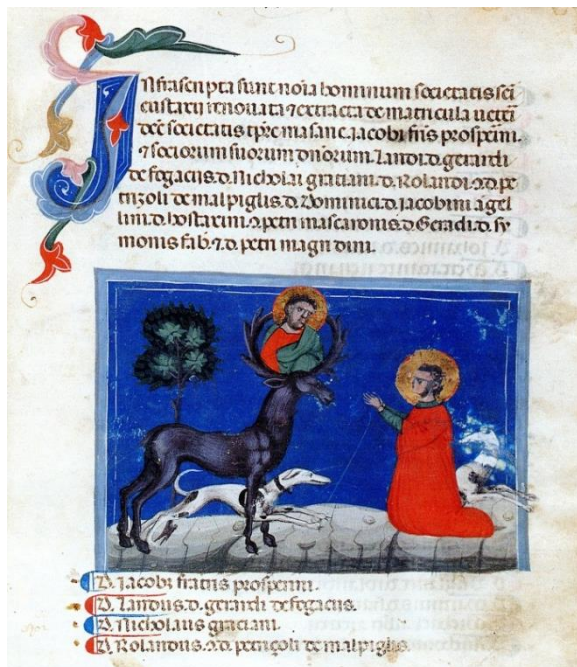 Infrascripta sunt noīa hominum societatis scī
eustachii renouata ⁊ extracta de matricula ueteri
dcē societatis tpr̄e ma sanc. jacobi frīs prosperini.
⁊ sociorum suorum dn̄orum. Landi. d. gerardi
de fogacijs. d. Nicholai graciani. d. Rolandi. ⁊ d. pe
trizoli de malpiglis. d. Dominici. d. jacobini agel
lini. d. bostareni. ⁊ petri mascaronis. d. Gerardi. d. sy
monis fab. ⁊ d. petri magri dini.
D. Jacobi fratris prosperini.
D. Landus. d. gerardi de fogacijs.
D. Nicholaus graciani.
D. Rolandus. ⁊ d. petriçoli de malpiglis.